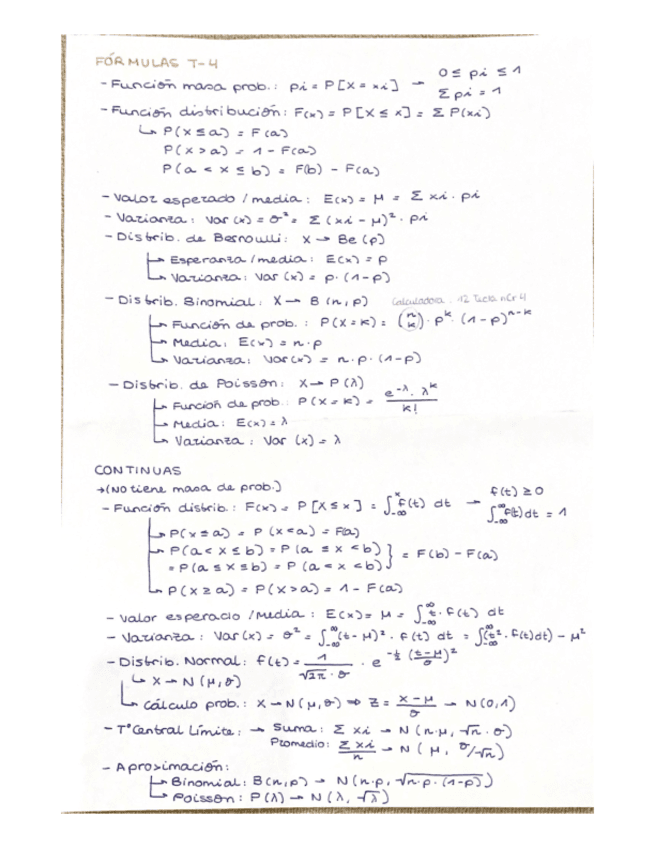 FÓRMULAS T-4
- Función masa prob.: pi = P[X = xi] → 0 ≤ pi ≤ 1
Σ pi = 1
- Función distribución: F(x) = P[X ≤ x] = Σ P(xi)
↳ P(X ≤ a) = F(a)
P(X > a) = 1 - F(a)
P(a < X ≤ b) = F(b) - F(a)
- Valor esperado / media: E(x) = μ = Σ xi · pi
- Varianza: Var(x) = σ² = Σ (xi - μ)² · pi
- Distrib. de Bernoulli: X → Be(p)
Esperanza/media: E(x) = p
Varianza: Var(x) = p · (1-p)
- Distrib. Binomial: X → B(n,p) Calculadora: 12 Tecla nCr 4
Función de prob.: P(X = k) = (n k) · p^k · (1-p)^n-k
Media: E(x) = n · p
Varianza: Var(x) = n · p · (1-p)
- Distrib. de Poisson: X → P(λ)
Función de prob.: P(X = k) = e^-λ · λ^k / k!
Media: E(x) = λ
Varianza: Var(x) = λ
CONTINUAS
→ (No tiene masa de prob.)
- Función distrib.: F(x) = P[X ≤ x] = ∫_-∞^x f(t) dt → f(t) ≥ 0
∫_-∞^∞ f(t) dt = 1
P(X ≤ a) = P(X < a) = F(a)
P(a < X ≤ b) = P(a ≤ X < b)
= P(a ≤ X ≤ b) = P(a < X < b) } = F(b) - F(a)
P(X ≥ a) = P(X > a) = 1 - F(a)
- Valor esperado / Media: E(x) = μ = ∫_-∞^∞ t · f(t) dt
- Varianza: Var(x) = σ² = ∫_-∞^∞ (t - μ)² · f(t) dt = ∫_-∞^∞ (t² · f(t) dt) - μ²
- Distrib. Normal: f(t) = 1 / √2π · σ · e^-½ (t-μ / σ)²
↳ X → N(μ, σ)
Cálculo prob.: X → N(μ, σ) ⇒ Z = X - μ / σ → N(0,1)
- Tª Central Límite: → Suma: Σ xi → N(n·μ, √n · σ)
Promedio: Σ xi / n → N(μ, σ/√n)
- Aproximación:
Binomial: B(n,p) → N(n·p, √n·p·(1-p))
Poisson: P(λ) → N(λ, √λ)